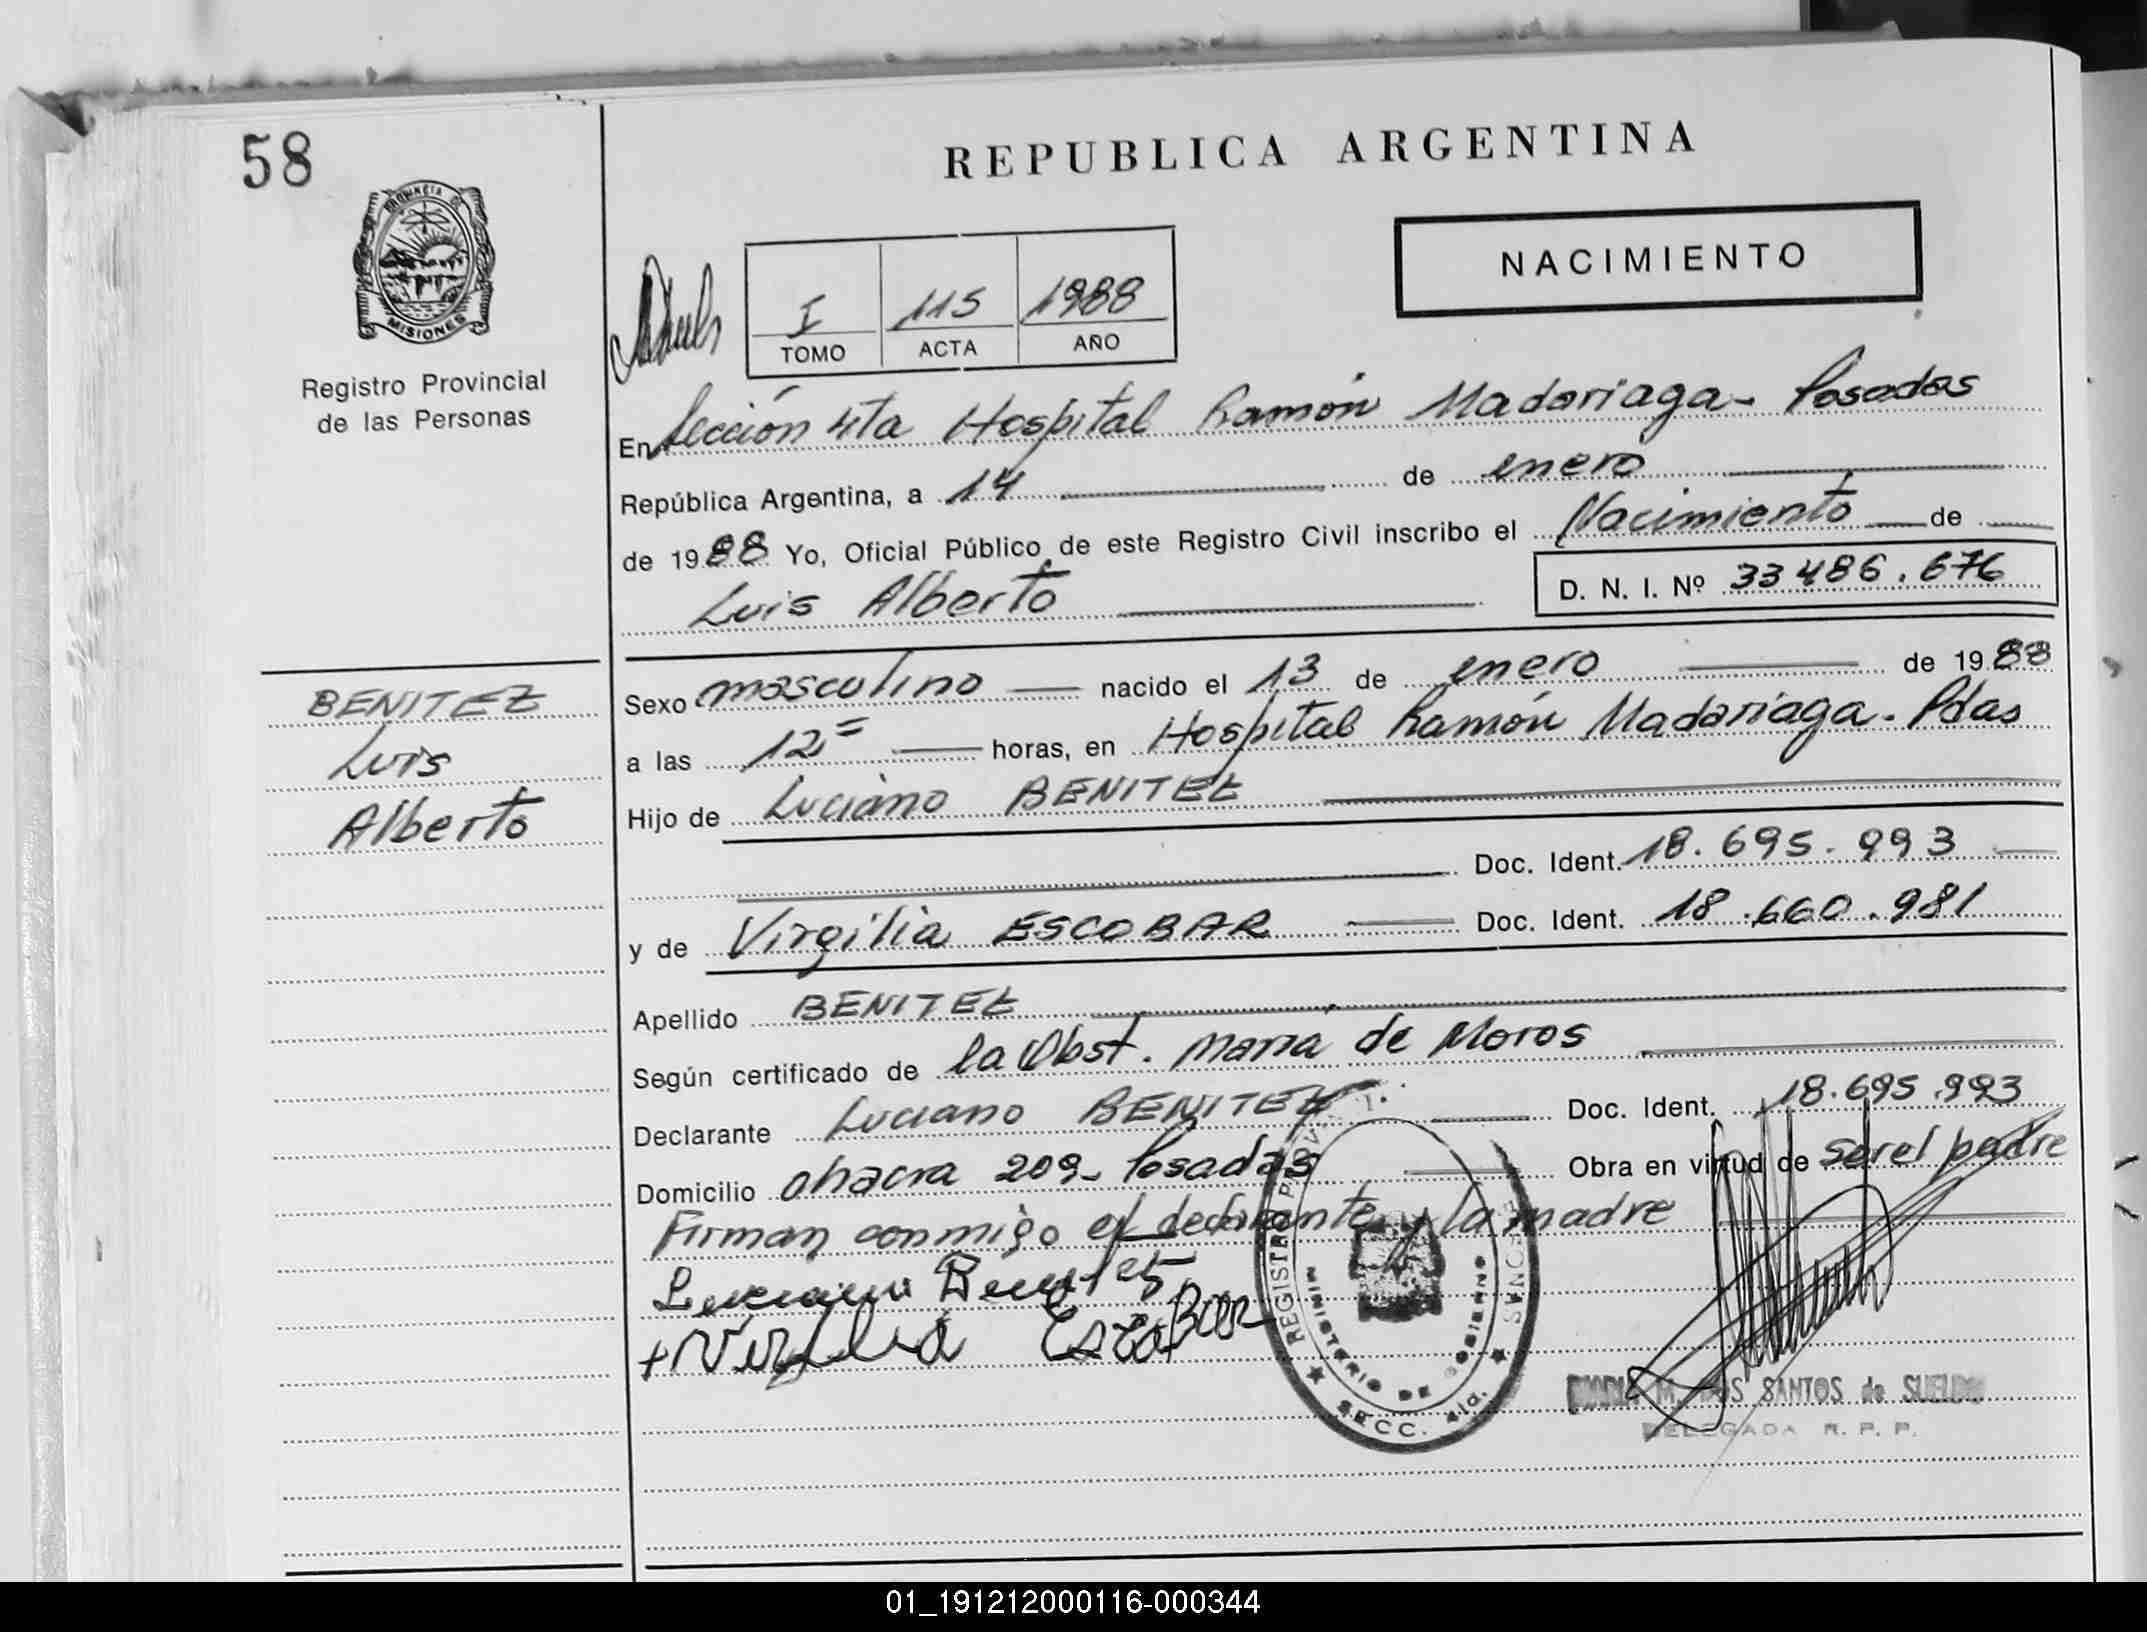 58
REPUBLICA ARGENTINA
PROVINCIA DE
MISIONES
Registro Provincial
de las Personas
I 115 1988
TOMO ACTA AÑO
NACIMIENTO
En Sección 4ta Hospital Ramón Madariaga - Posadas
República Argentina, a 14 de enero
de 1988 Yo, Oficial Público de este Registro Civil inscribo el Nacimiento de
Luis Alberto
D. N. I. Nº 33486.676
BENITEZ
Luis
Alberto
Sexo masculino nacido el 13 de enero de 1988
a las 12= horas, en Hospital Ramón Madariaga - Pdas
Hijo de Luciano BENITEZ
Doc. Ident. 18.695.993
y de Virgilia ESCOBAR Doc. Ident. 18.660.981
Apellido BENITEZ
Según certificado de la Obst. María de Moros
Declarante Luciano BENITEZ Doc. Ident. 18.695.993
Domicilio chacra 209 - Posadas Obra en virtud de ser el padre
Firman conmigo el declarante y la madre
Luciano Benites
+ Virgilia Escobar
REGISTRO PROV.
MINISTERIO DE GOBIERNO
SECC. 4ta.
M. DOS SANTOS de SUELDO
DELEGADA R. P. P.
01_191212000116-000344